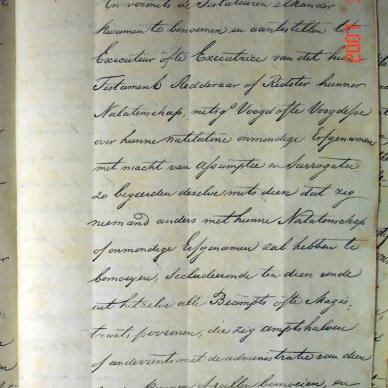 En vermits de Testateuren elkander
kwamen te benoemen en aantestellen tot
Executeur ofte Executrice van dit hun
Testament Redderaar of Redster hunner
Nalatenschap, mitsgs Voogd ofte Voogdesse
over hunne natelatene onmondige Erfgenamen
met macht van Assumptie en Surrogatie
zo begeerden dezelve mits deen dat zig
niemand anders met hunne Nalatenschap
of onmondige Erfgenamen zal hebben te
bemoeyen, Secludeerende ten dien einde
uit hetzelve alle Beampts ofte Magis,
traats persoonen, die zig amptshalven
of anderzints met de administratie van dien
zullen bemoeien, en
2001